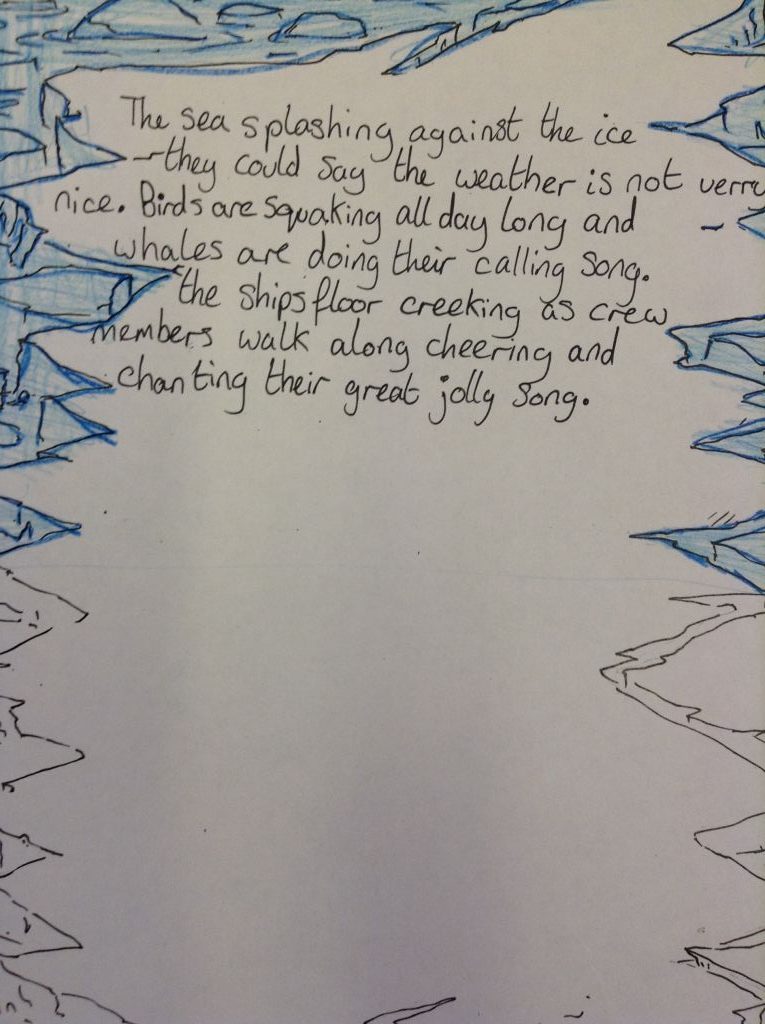 The sea splashing against the ice
-they could say the weather is not verry
nice. Birds are squaking all day long and
whales are doing their calling song.
the ships floor creeking as crew
members walk along cheering and
chanting their great jolly song.